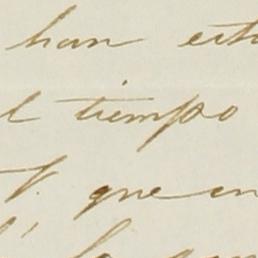 han esta
el tiempo
V. que en